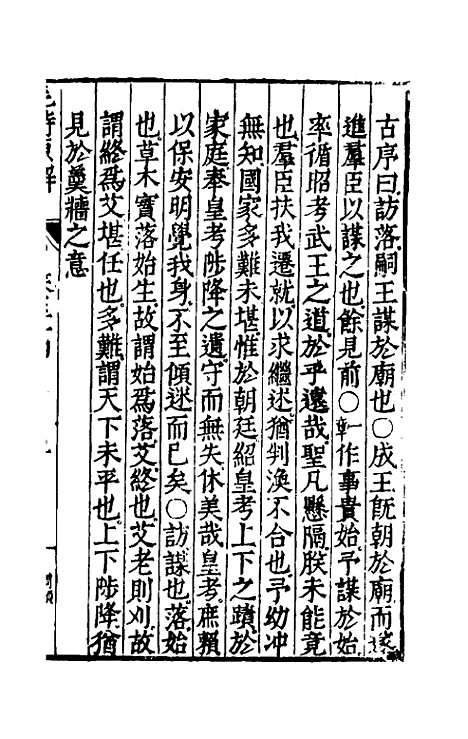 古序曰訪落嗣王謀於廟也○成王旣朝於廟而遂
進羣臣以謀之也餘見前○朝作事貴始予謀於始
率循昭考武王之道於乎遠哉聖凡懸隔朕未能竟
也羣臣扶我遷就以求繼述猶判渙不合也予幼冲
無知國家多難未堪惟於朝廷紹皇考上下之蹟於
家庭奉皇考陟降之遺守而無失休美哉皇考庶賴
以保安明覺我身不至傾迷而已矣○訪謀也落始
也草木實落始生故謂始爲落艾終也艾老則刈故
謂終爲艾堪任也多難謂天下未平也上下陟降猶
見於羹牆之意
毛詩原解